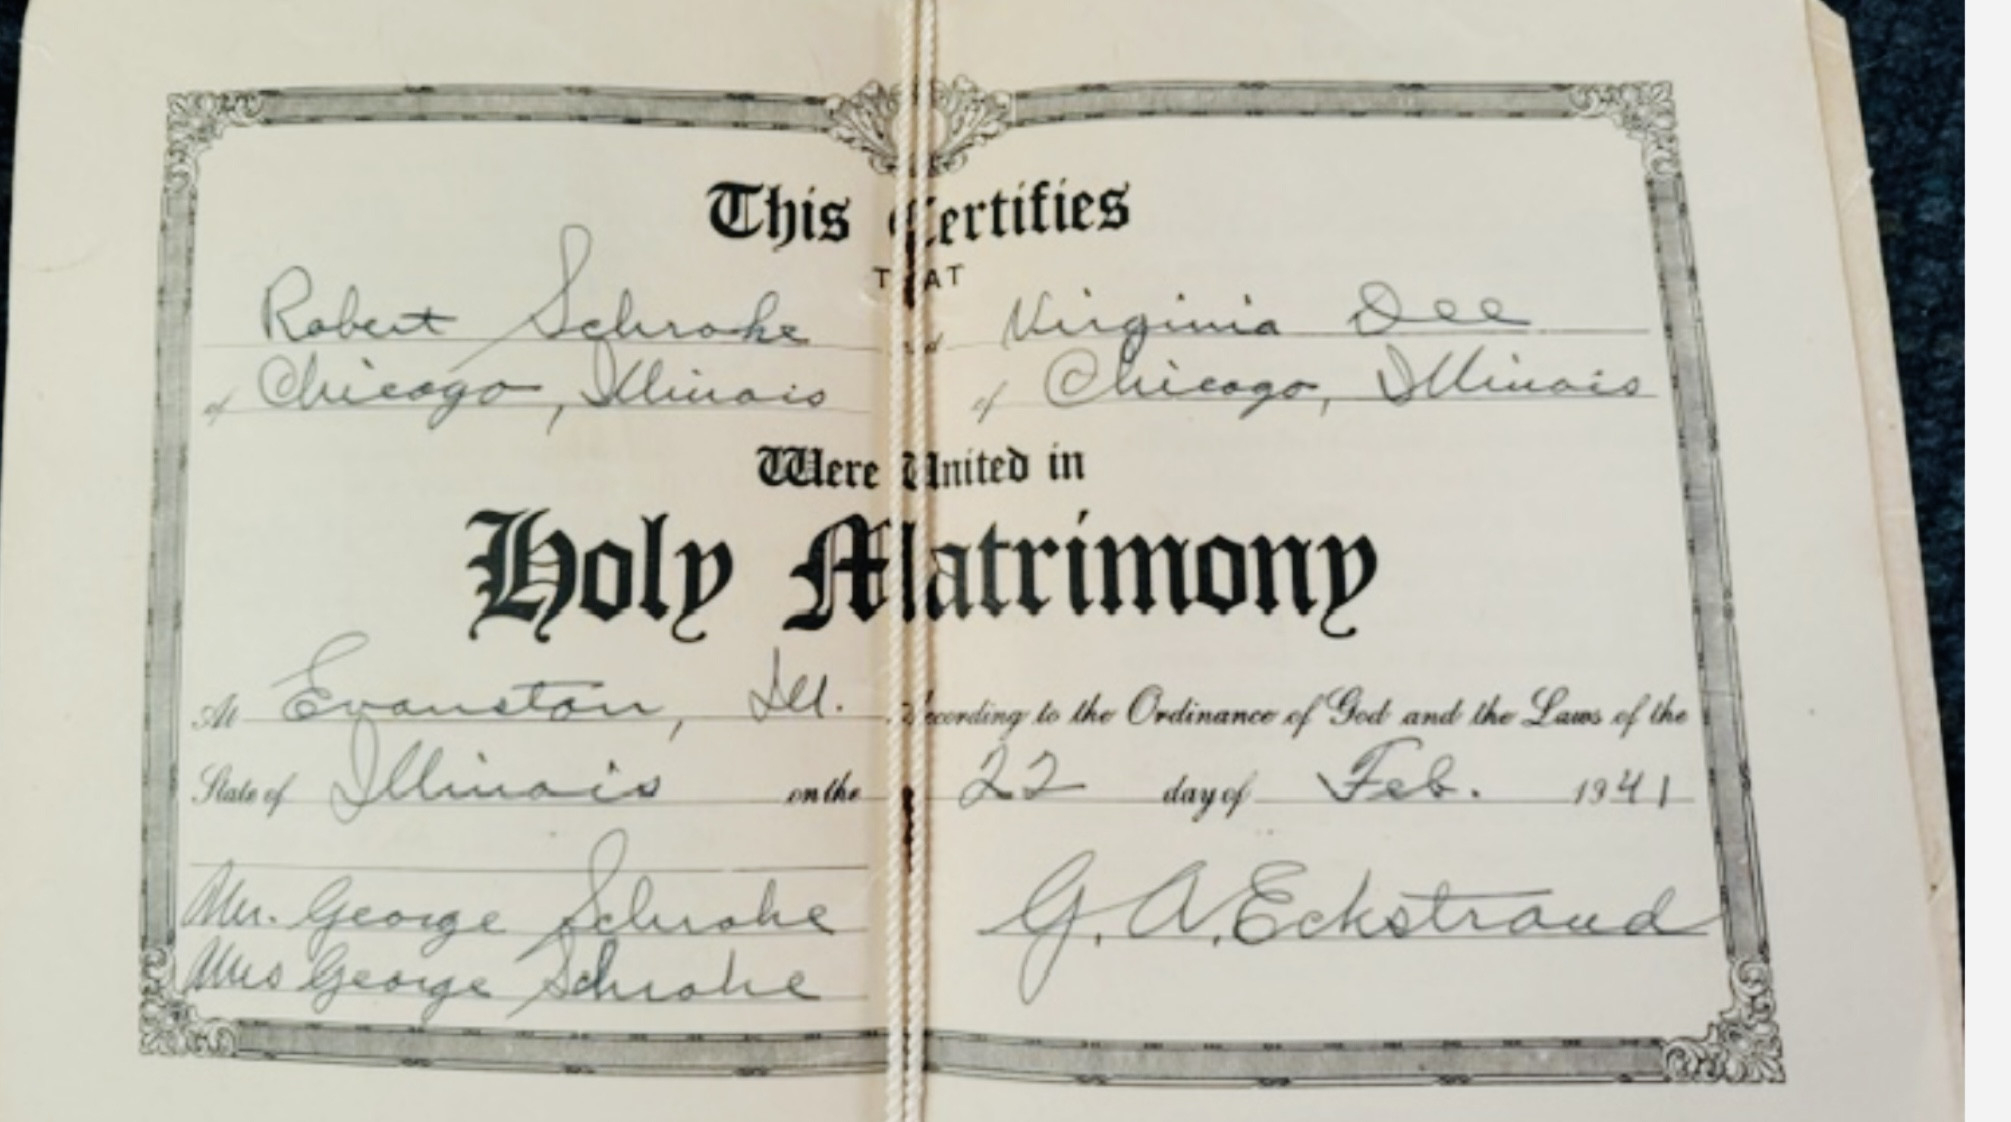 This Certifies
THAT
Robert Schrohe and Virginia Dee
of Chicago, Illinois of Chicago, Illinois
Were United in
Holy Matrimony
At Evanston, Ill. According to the Ordinance of God and the Laws of the
State of Illinois on the 22 day of Feb. 1941
Mr. George Schrohe G. A. Eckstrand
Mrs George Schrohe